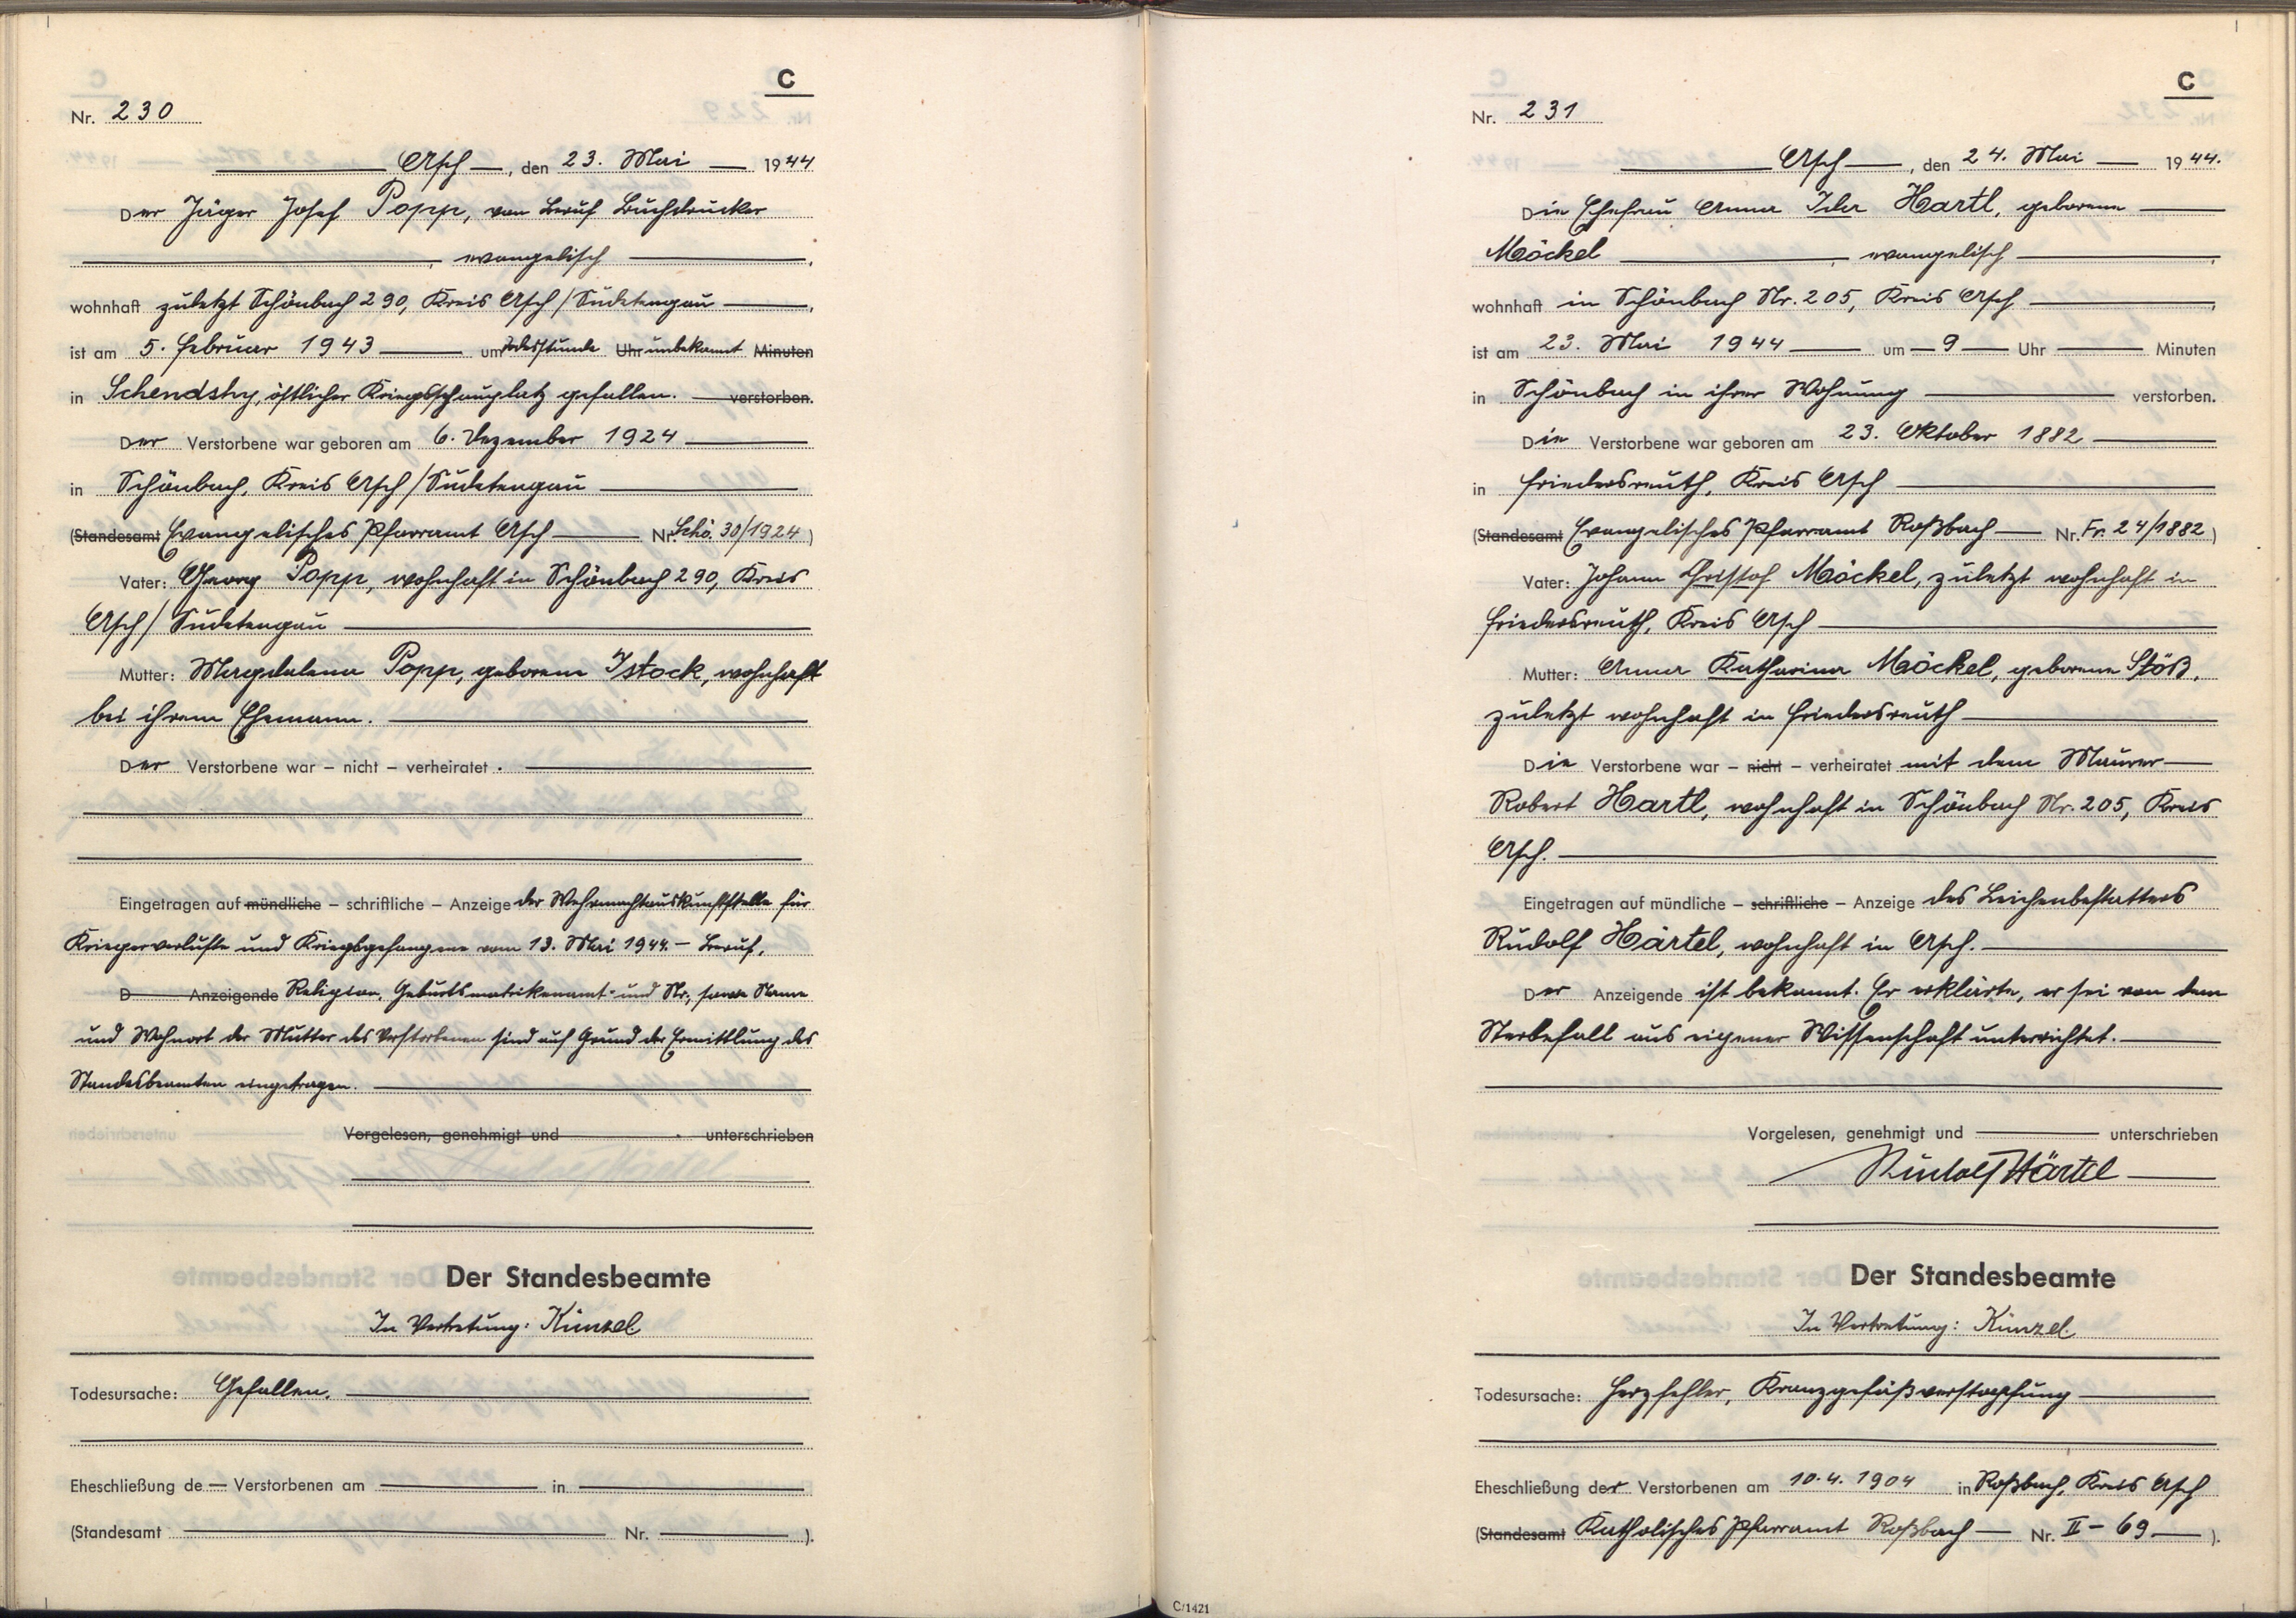 C
Nr. 230
Asch, den 23. Mai 1944
Der Jäger Josef Popp, von Beruf Buchdrucker
, evangelisch ,
wohnhaft zuletzt Schönbach 290, Kreis Asch/Sudetengau ,
ist am 5. Februar 1943 um Todesstunde Uhr unbekannt Minuten
in Schendshy, östlicher Kriegsschauplatz gefallen. verstorben.
Der Verstorbene war geboren am 6. Dezember 1924
in Schönbach, Kreis Asch/Sudetengau
(Standesamt Evangelisches Pfarramt Asch Nr. Schö. 30/1924)
Vater: Georg Popp, wohnhaft in Schönbach 290, Kreis
Asch/Sudetengau
Mutter: Magdalena Popp, geborene Istock, wohnhaft
bei ihrem Ehemann.
Der Verstorbene war – nicht – verheiratet.
Eingetragen auf mündliche – schriftliche – Anzeige der Wehrmachtauskunftstelle für
Kriegerverluste und Kriegsgefangene vom 13. Mai 1944. – Beruf,
D Anzeigende Religion, Geburtsmatrikenamt und Nr., sowie Name
und Wohnort der Mutter des Verstorbenen sind auf Grund der Ermittlung des
Standesbeamten eingetragen.
Vorgelesen, genehmigt und unterschrieben
Der Standesbeamte
In Vertretung: Künzel.
Todesursache: Gefallen.
Eheschließung de Verstorbenen am in
(Standesamt Nr. ).
C
Nr. 231
Asch, den 24. Mai 1944.
Die Ehefrau Anna Ida Hartl, geborene
Möckel , evangelisch ,
wohnhaft in Schönbach Nr. 205, Kreis Asch ,
ist am 23. Mai 1944 um 9 Uhr Minuten
in Schönbach in ihrer Wohnung verstorben.
Die Verstorbene war geboren am 23. Oktober 1882
in Friedersreuth, Kreis Asch
(Standesamt Evangelisches Pfarramt Roßbach Nr. Fr. 24/1882)
Vater: Johann Christof Möckel, zuletzt wohnhaft in
Friedersreuth, Kreis Asch
Mutter: Anna Katharina Möckel, geborene Stöß,
zuletzt wohnhaft in Friedersreuth
Die Verstorbene war – nicht – verheiratet mit dem Maurer
Robert Hartl, wohnhaft in Schönbach Nr. 205, Kreis
Asch.
Eingetragen auf mündliche – schriftliche – Anzeige des Leichenbestatters
Rudolf Härtel, wohnhaft in Asch.
Der Anzeigende ist bekannt. Er erklärte, er sei von dem
Sterbefall aus eigener Wissenschaft unterrichtet.
Vorgelesen, genehmigt und unterschrieben
Rudolf Härtel
Der Standesbeamte
In Vertretung: Künzel.
Todesursache: Herzfehler, Kranzgefäßverstopfung
Eheschließung der Verstorbenen am 10.4.1904 in Roßbach, Kreis Asch
(Standesamt Katholisches Pfarramt Roßbach Nr. II – 69 ).
C/1421